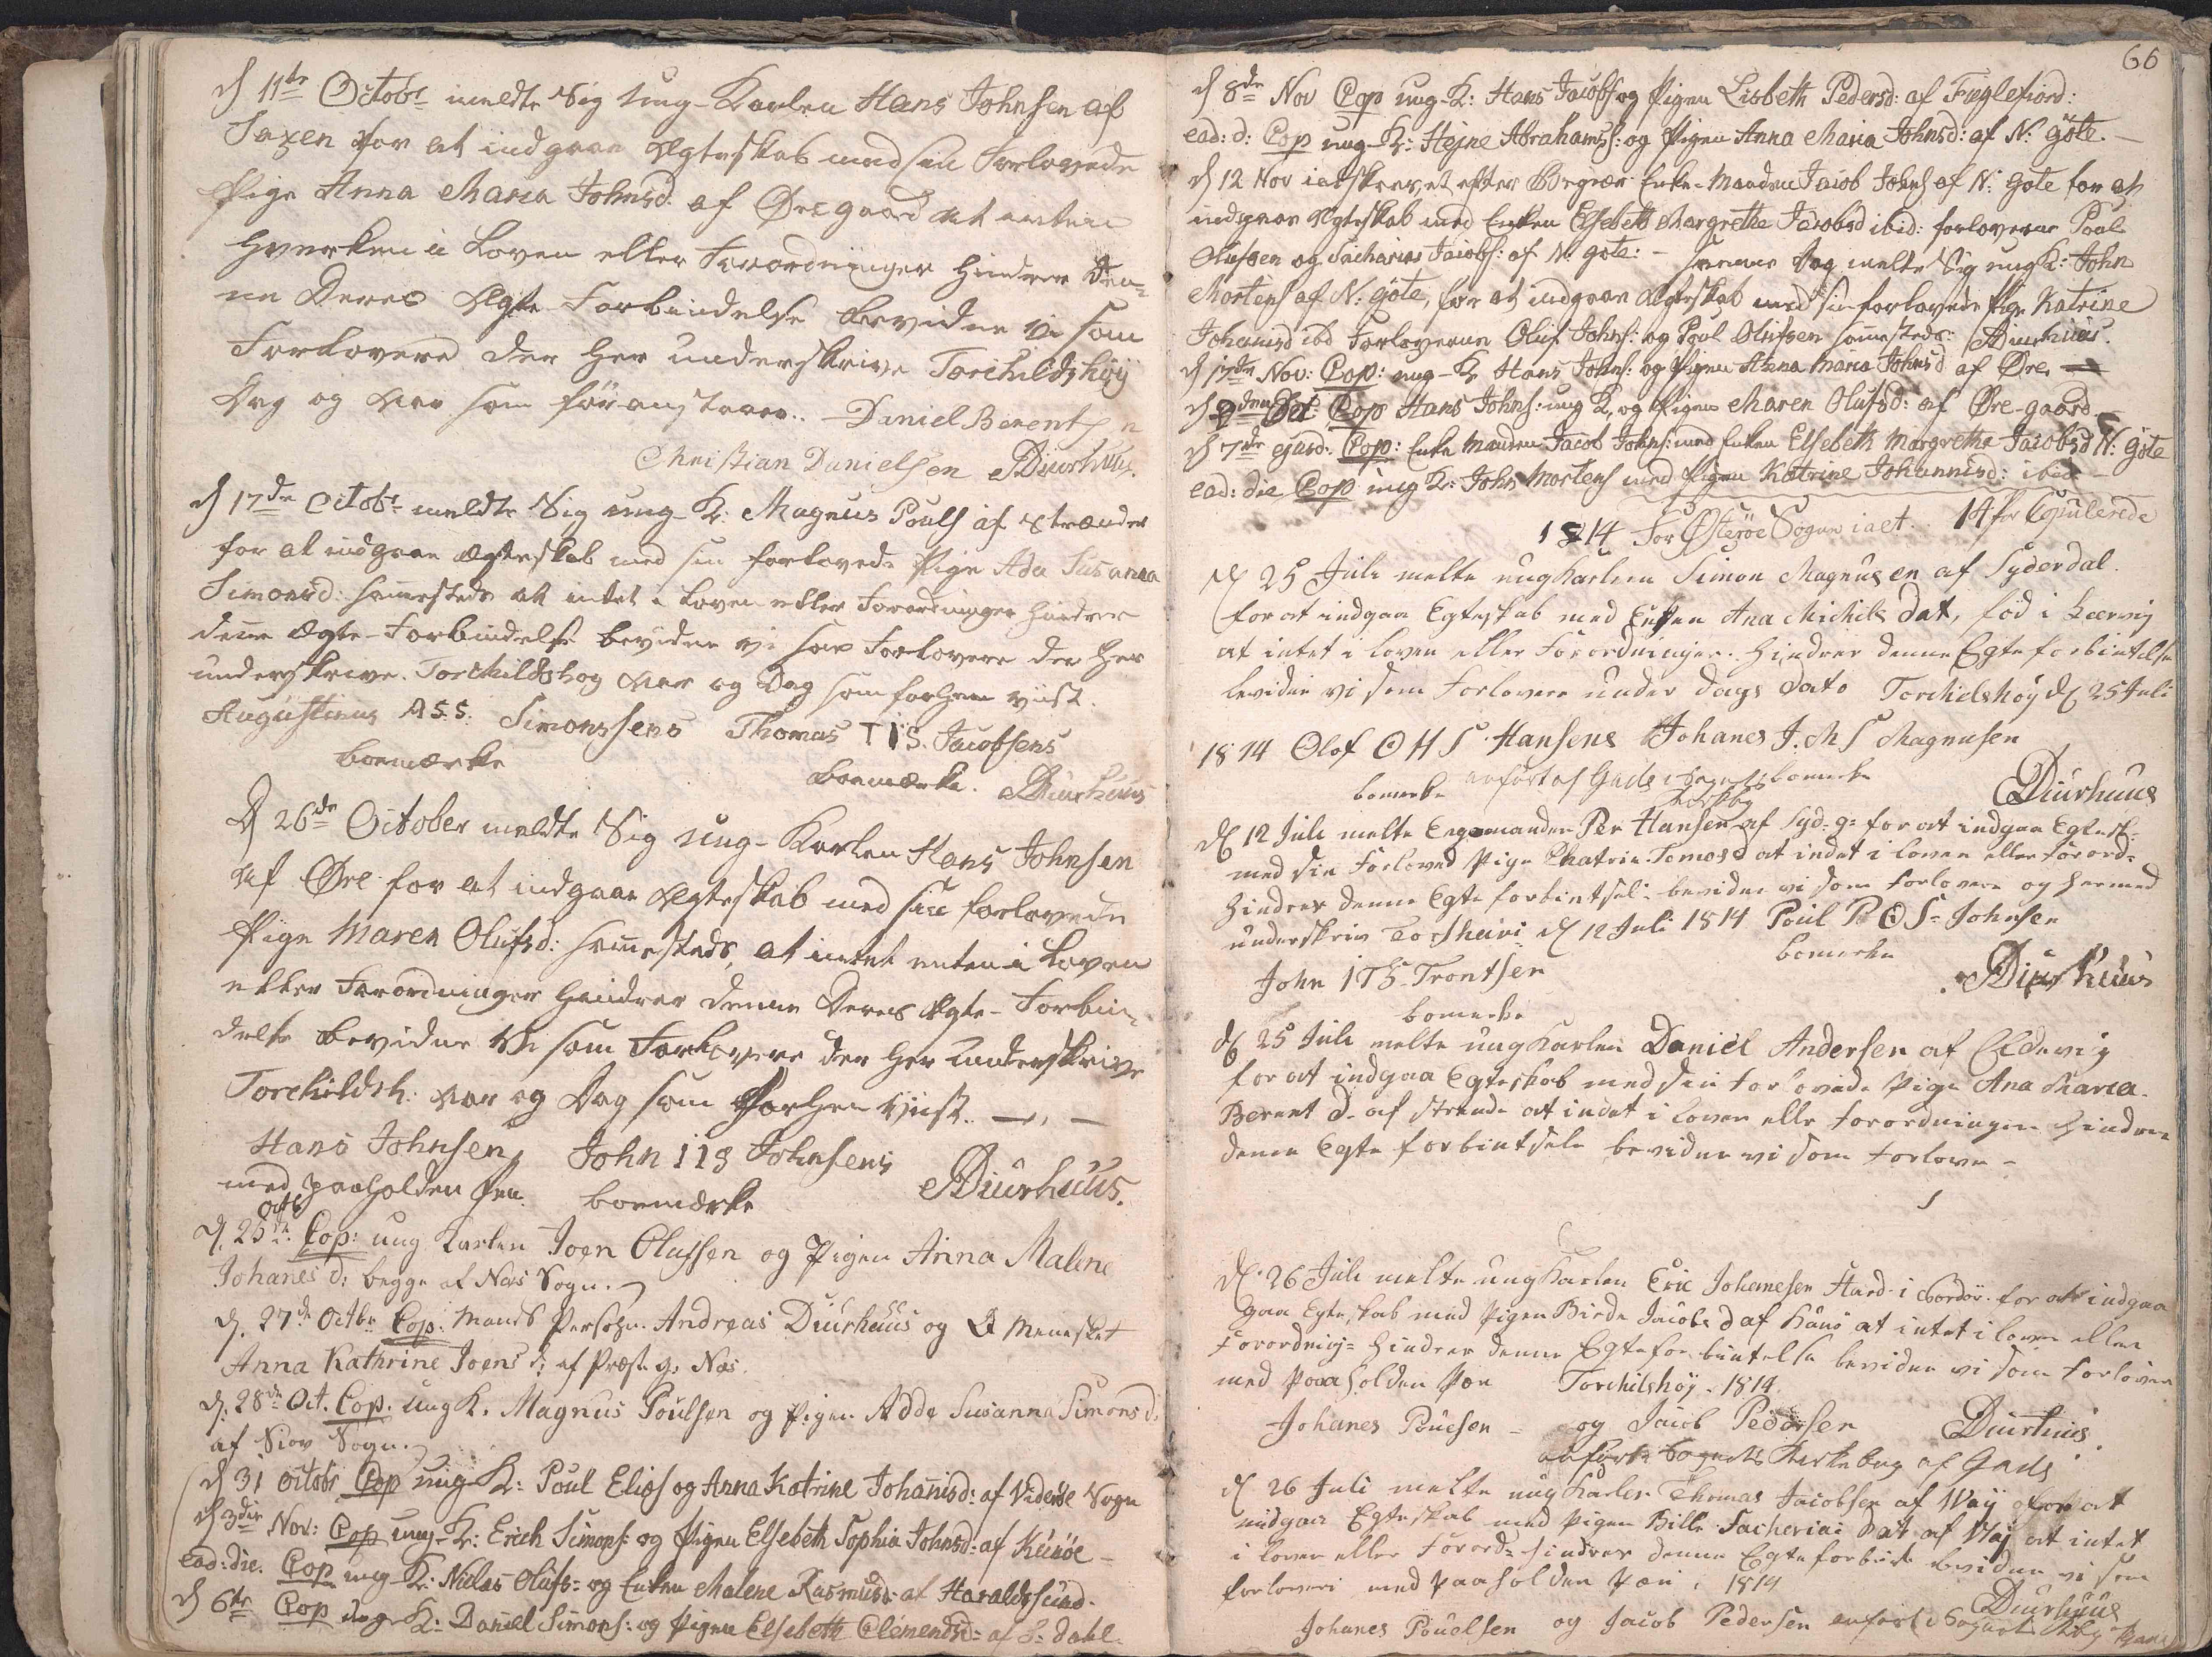 d 11te Octobr meldte Sig Ung-Karlen Hans Johnsen af
Saxen for at indgaae Ægteskab med sin Forlovede
Pige Anna Maria Johnsd. af Øregaard at enten
hverken i Loven eller Forordninger hindrer den-
ne Deres Ægte Forbindelse bevidne Vi som
Forlovere der her underskrive Torchildshøy
Dag og Aar som för anstaaer. Daniel Berentsen
Christian Danielsen Diurhuus.
d 17de Octobr meldte Sig ung-K: Magnus Pouls af Strænder
for at indgaae Ægteskab med sin forlovede Pige Ada Susanna
Simonsd: samesteds at intet i Loven eller Forordninger hindrer
denne Ægte-Forbindelse bevidne vi som Forlovere der her
underskrive. Torchildshog Aar og Dag som forhen viist.
Augustinus A S S. Simonssens Thomas T I S. Jacobsens
boemærke boemærke. Diurhuus
D 26de October meldte Sig Ung-Karlen Hans Johnsen
af Øre for at indgaae Ægteskab med sin forlovede
Pige Maren Olufsd: samesteds, at intet enten i Loven
eller Forordninger hindrer denne Deres Ægte-Forbin-
delse bevidne Vi som Forlovere der her Underskrive
Torchildsh: Aar og Dag som Forhen Viist. —, —
Hans Johnsen, John I I S Johnsens Diurhuus.
med paaholden Pen. boemærke
d. 25de Octb Cop: ung Karlen Joen Olufsen og Pigen Anna Malene
Johanes d: begge af Næs Sogn.
d. 27de Octbr Cop: Mands Persohn Andreas Diurhuus og Q Menesket
Anna Kathrine Joens d: af Præste g: Næs.
d. 28de Oct. Cop. Ung K. Magnus Poulsen og Pigen Adde Susanna Simons d:
af Siov Sogn.
d 31 Octobr Cop ung-K: Poul Elias og Anna Katrine Johanisd: af Viderøe Sogn
d 3die Nov: Cop ung-K: Erich Simons: og Pigen Elsebeth Sophia Johnsd: af Kunöe —
ead: die. Cop ung-K: Niclas Olufs= og Enken Malene Rasmusd: af Haraldssund.
d 6te Cop ung K: Daniel Simons: og Pigen Elsebeth Clemendsd= af S= Dahl.
66
d 8de Nov Cop ung-K: Hans Jacobs og Pigen Lisbeth Pedersd: af Fuglefiord:
ead: d: Cop ung-K: Hejne Abrahamss: og Pigen Anna Maria Johnsd: af N: Göte. —
d 12 Nov indskrevet efter Begiær Enke-Manden Jacob Johns af N: Gote for at
indgaae Ægteskab med Enken Elsebeth Margrethe Jacobsd ibid: forloverne Poul
Olufsen og Sacharias Jacobs: af N: gote: — samme Dag melte Sig ung K: John
Mortens af N: Göte, for at indgaae Ægteskab med sin forlovede Pige Katrine
Johanisd ibd Forloverne Oluf Johns: og Poul Olufsen samesteds: Diurhuus.
d 17de Nov: Cop: ung-K Hans Johns: og Pigen Anna Maria Johnsd af Øre. —
d 2den Cop Hans Johns: ung K, og Pigen Maren Olufsd: af Øre-gaard. —
d 7de ejusd: Cop: Enke Manden Jacob Johns: med Enken Elsebeth Margretha Jacobsd N: Göte
ead: die Cop ung K: John Mortens med Pigen Katrine Johannisd: ibid —
1814 For Østerøe Sogne iaet. 14 for Copulerede
d 25 Juli melte ungkarlen Simon Magnusen af Syderdal.
for at indgaa Egteskab med Enken Ana Michils Dat, föd i
at intet i loven eller Forordninger hindrer denne Egte forbintelse
bevidne vi som Forlovere under dags dato Torchilshöy d 25 Juli
1814 Olof O H S Hansens Johanes J. M S Magnusen
bomerke anfört af Gads bomerke
Diurhuus
d 12 Juli melte Enkemanden Per Hansen af Syd. g= for at indgaa Egtesk=
med sin Forloved Pige Chatrin Tomasd at indet i loven eller Forord=
hindrer denne Egte forbintsel= bevidne vi som Forlovere og hermed
underskriv d 12 Juli 1814 Poul P O S= Johnsen
John I T S Trontsen bomerke
bomerke Diurhuus
d 25 Juli melte ungkarlen Daniel Andersen af Eldevig
for at indgaa Egteskab med sin forlovede Pige Ana Maria
Berent d= af Strende at indet i loven elle Forordningen hindrer
denne Egte forbintsele bevidne vi som Forlove =
d. 26 Juli melte ungkarlen Eric Johanesen Hard i for at indgaa
gaa Egteskab med Pigen Birde Jacobs d af at intet i loven eller
Forordning= hindrer denne Egteforbintelse bevidne vi som Forlover
med paaholden Pen Torchilshöy. 1814.
Johanes Pouesen = og Jacob Pedersen Diurhuus
anfört Sognets Kirkebog af Gads
d 26 Juli melte ungkarlen Thomas Jacobsen af Waÿ for at
indgaa Egteskab med Pigen Bille Sacherias dat af Waj at intet
i loven eller Forord= hindrer denne Egteforbind bevidne vi som
forlovere med paaholden Pen. 1814
Diurhuus
Johanes Pouelsen og Jacob Pedersen anfört i